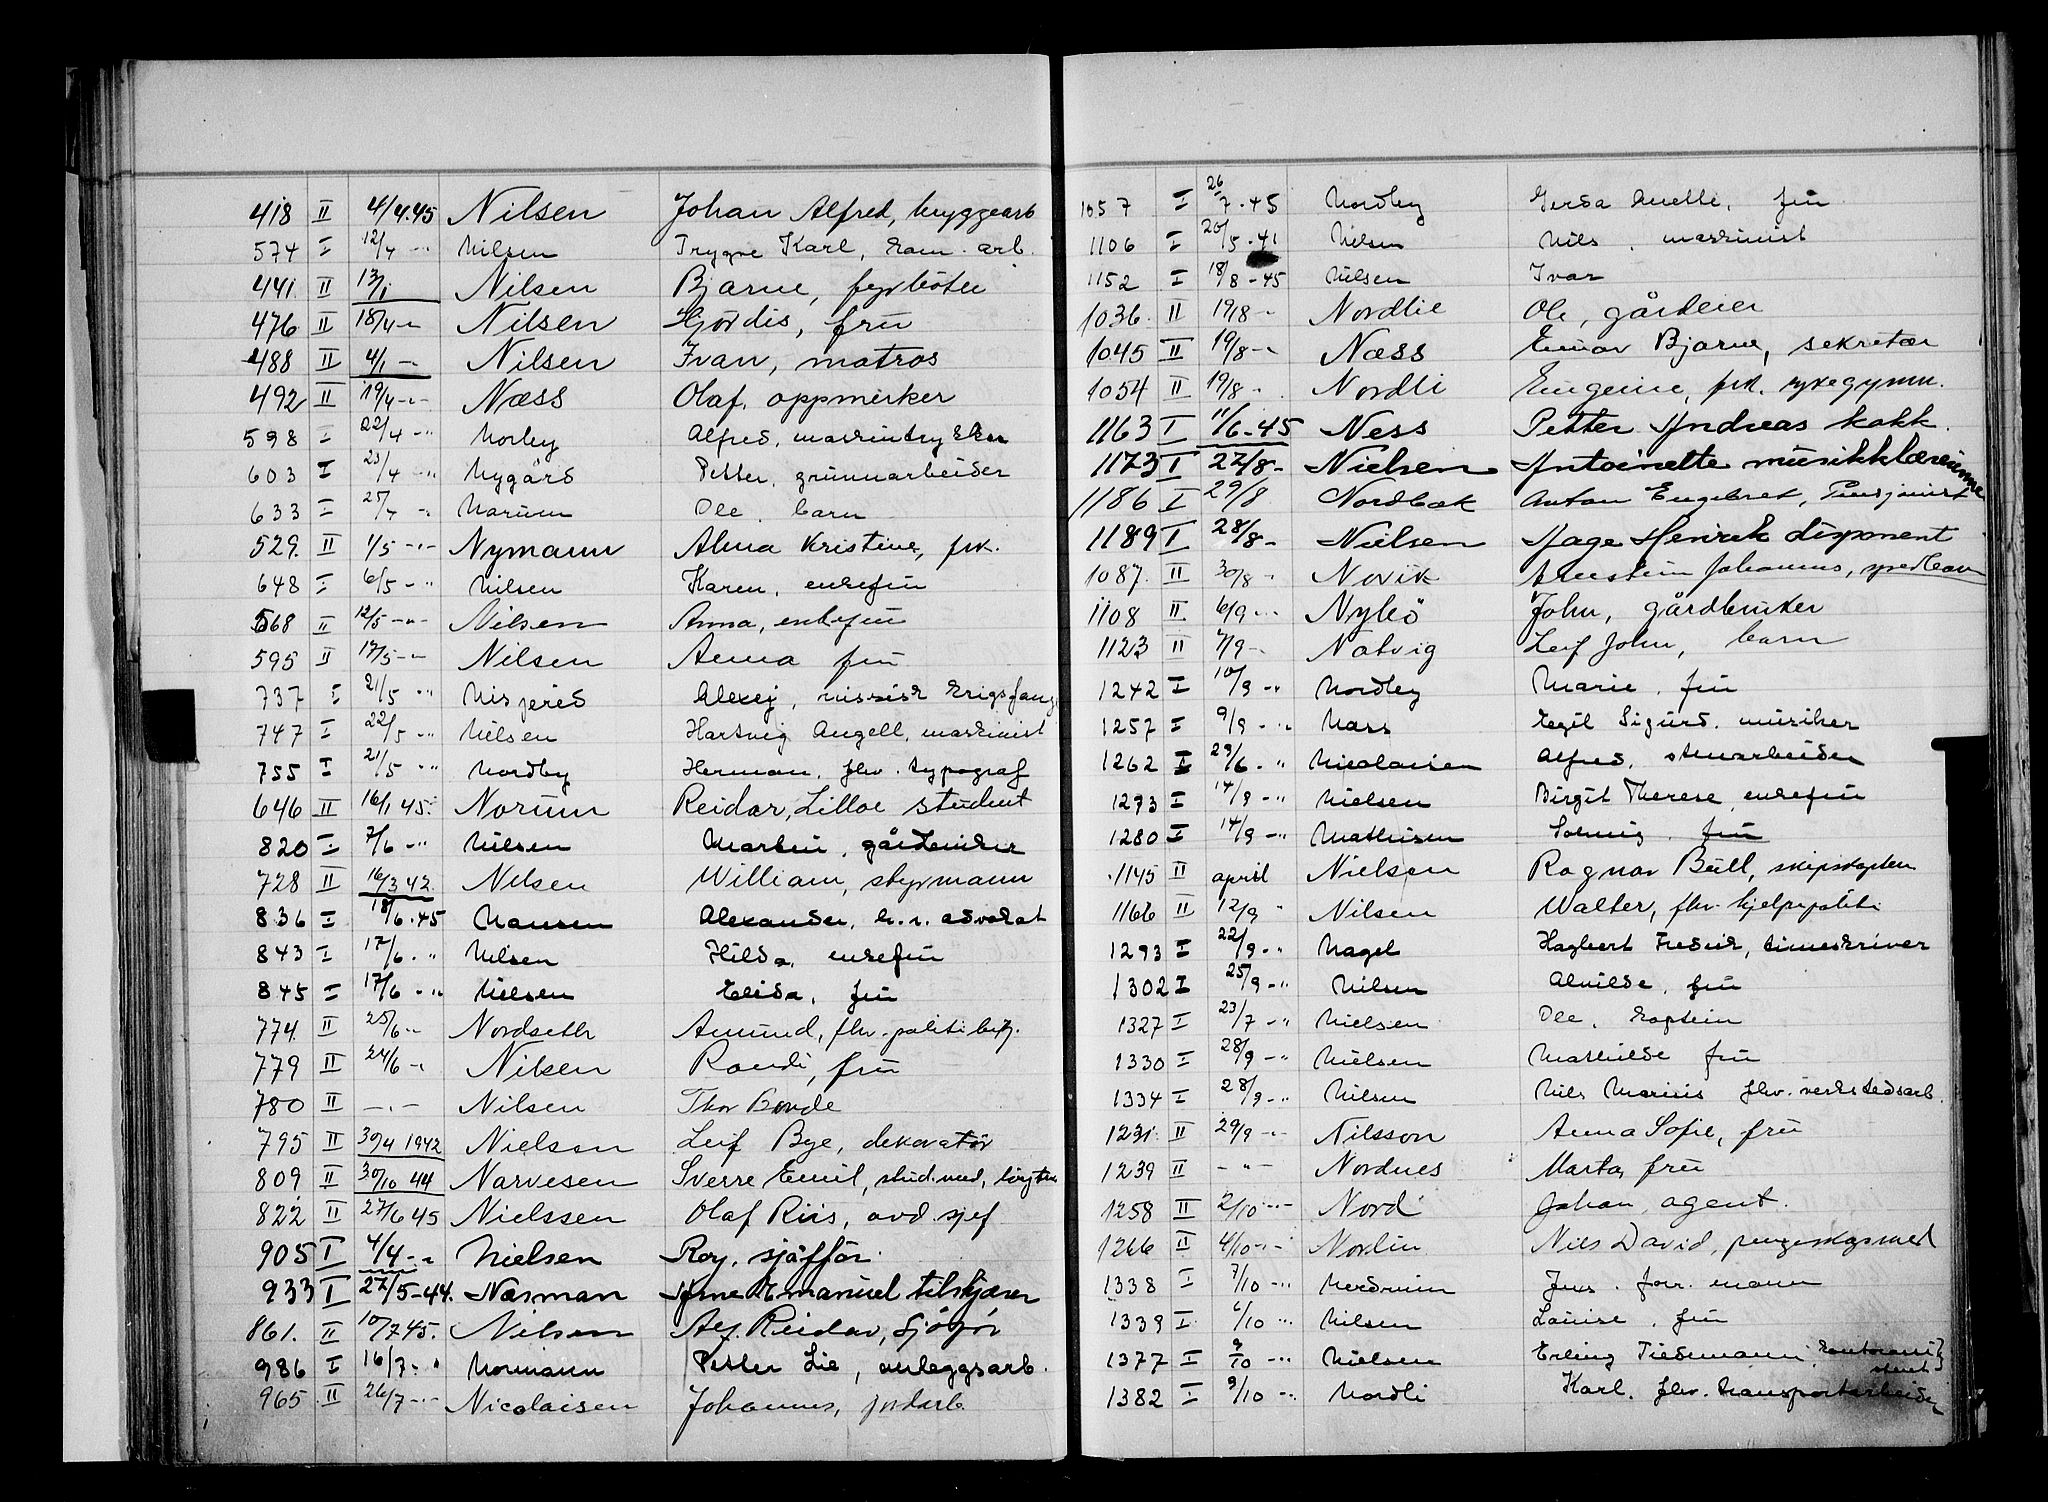 418 II 4/4.45 Nilsen Johan Alfred, bryggearb
574 I 12/4 -"- Nilsen Trygve Karl, kom. arb.
441. II 13/1 Nilsen Bjarne, fyrböter
476 II 18/4 -"- Nilsen Hjørdis, frü
488 II 4/1 -"- Nilsen Ivan, matros
492 II 19/4 -"- Næss Olaf, oppmerker
598 I 22/4 -"- Norby Alfred, maskintrykker
603 I 23/4 -"- Nygård Petter, grünnarbeider
633 I 25/4 -"- Narum Ole, barn
529. II 1/5 -"- Nymann Alma Kristine, frk.
648 I 6/5 -"- Nilsen Karen, enkefrü
568 II 12/5 -"- Nilsen Anna, enkefrü
595 II 17/5 -"- Nilsen Anna frü
737 I 21/5 -"- Alexej, rüssisk krigsfange
747 I 22/5 -"- Nilsen Hartvig Angell, maskinist
755 I 21/5 -"- Nordby Herman, fhv. typograf
646 II 16/1 45. Norum Reidar, Lilloe stüdent
820 I 7/6 -"- Nilsen Martin, gårdbrüker
728 II 16/3 42. Nilsen William, styrmann
836 I 18/6.45 Nansen Alexander, h.r. advokat
843 I 17/6 -"- Nilsen Hilda, enkefrü
845 I 17/6 -"- Nielsen Elida, frü
774. II 25/6 -"- Nordseth Amünd, fhv. politibetj.
779 II 24/6 -"- Nilsen Randi, frü
780 II -"- Nilsen Thor Bonde
795 II 30/4 1942 Nielsen Leif Bye, dekoratör
809 II 30/10 44 Narvesen Sverre Emil, stüd. med,
822 II 27/6 45 Nielssen Olaf Riis, avd. sjef
905 I 4/4 -"- Nielsen Roy, sjåffør.
933 I 27/5-44. Næsman Arne Emanuel tilskjærer
861. II 10/7 45. Nilsen Alf Reidar, Sjåför
986 I 16/7 -"- Normann Petter Lie, anleggsarb.
965 II 26/7 -"- Nicolaisen Johannes, jordarb
1057 I 26/7.45 Nordby Gerda Anelle, frü
1106 I 20/5.41 Nilsen Nils, maskinist
1152 I 18/8-45 Nilsen Ivar
1036. II 19/8 -"- Nordlie Ole, gårdeier
1045 II 19/8 -"- Næss Einar Bjarne, sekretær
1054 II 19/8 -"- Nordli Eugenie, frk. sykegymn.
1163 I 11/6-45 Ness Petter Andreas kokk.
1173 I 27/8- Nielsen Antoinette müsikklærerinne
1186 I 29/8 Nordbak Anton Engebret, Pensjonist
1189 I 28/8- Nielsen Aage Henrik disponent
1087. II 30/8 -"- Novik Arnstein Johannes, spedbarn
1108 II 6/9 -"- Nybö John, gårdbrüker
1123 II 7/9 -"- Natvig Leif John, barn
1242 I 10/9 -"- Nordby Marie, frü
1257 I 9/9 -"- Nass Egil Sigurd, müsiker
1262 I 29/6 -"- Nicolaisen Alfred, stenarbeider
1293 I 14/9 -"- Nielsen Birgit Therese, enkefrü
1280 I 14/9 -"- Mathisen Solveig, frü
1145 II april Nielsen Ragnar Bull, skipskaptein
1166 II 12/9 -"- Nilsen Walter, fhv. hjelpepoliti
1293 I 22/9 -"- Nagel Hagbert Fredrik, timeskriver
1302 I 25/9 -"- Nilsen Alvilde, frü
1327 I 23/7 -"- Nielsen Ole, kaptein
1330 I 28/9 -"- Nielsen Mathilde frü
1334 I 28/9 -"- Nilsen Nils Marius fhv. verkstedsarb.
1231. II 29/9 -"- Nilsson Anna Sofie, frü
1239 II -"- Nordnes Marta, frü
1258 II 2/10 -"- Nord Johan, agent.
1266 II 4/10 -"- Nordin Nils David, pengeskapsmed
1338 I 7/10 -"- Nerdrum Jens, forr. mann
1339 I 6/10 -"- Nilsen Louise, frü
1377 I 9/10 -"- Nielsen Erling Tiedemann, kontorassistent
1382 I 9/10 -"- Nordli Karl, fhv. transportarbeider